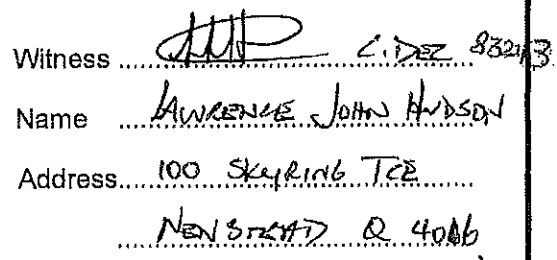 Witness C. DEZ 83213
Name LAWRENCE JOHN HUDSON
Address 100 SKYRING TCE
NEWSTEAD Q 4006